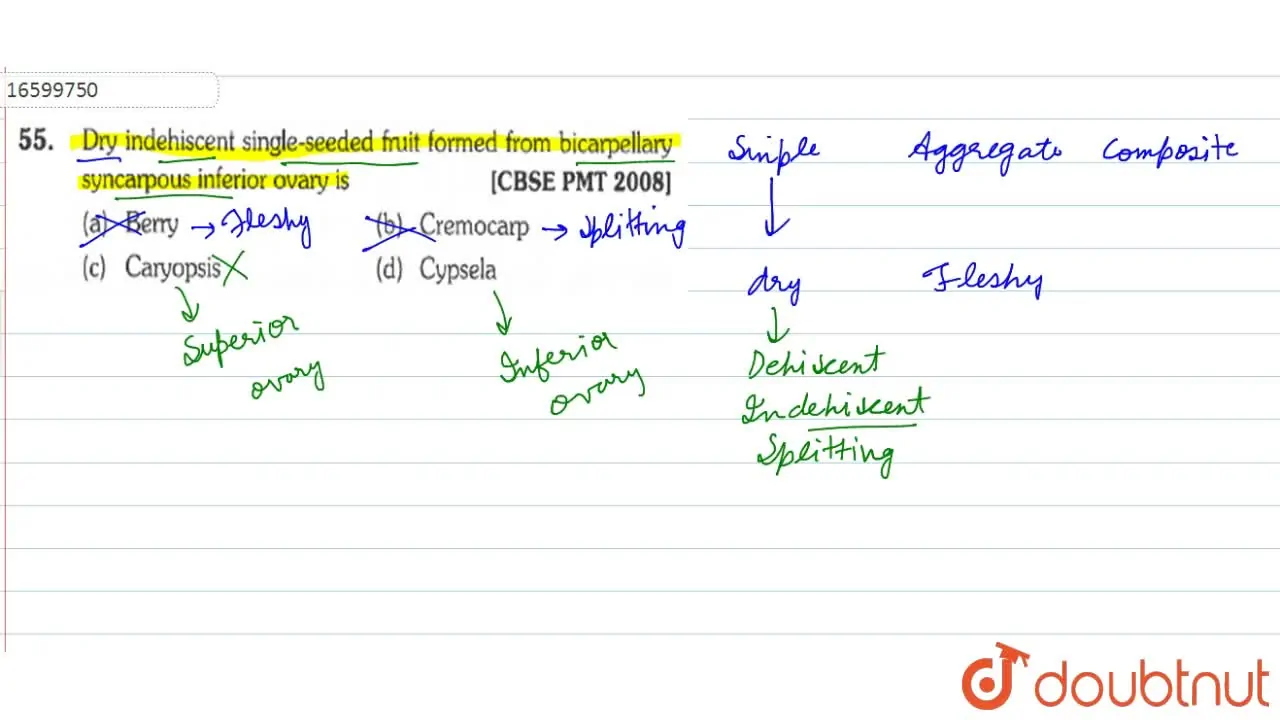 16599750
55. Dry indehiscent single-seeded fruit formed from bicarpellary
syncarpous inferior ovary is [CBSE PMT 2008]
(a) Berry → Fleshy (b) Cremocarp → Splitting
(c) Caryopsis X (d) Cypsela
Superior
ovary
Inferior
ovary
Simple Aggregate Composite
dry Fleshy
Dehiscent
Indehiscent
Splitting
doubtnut